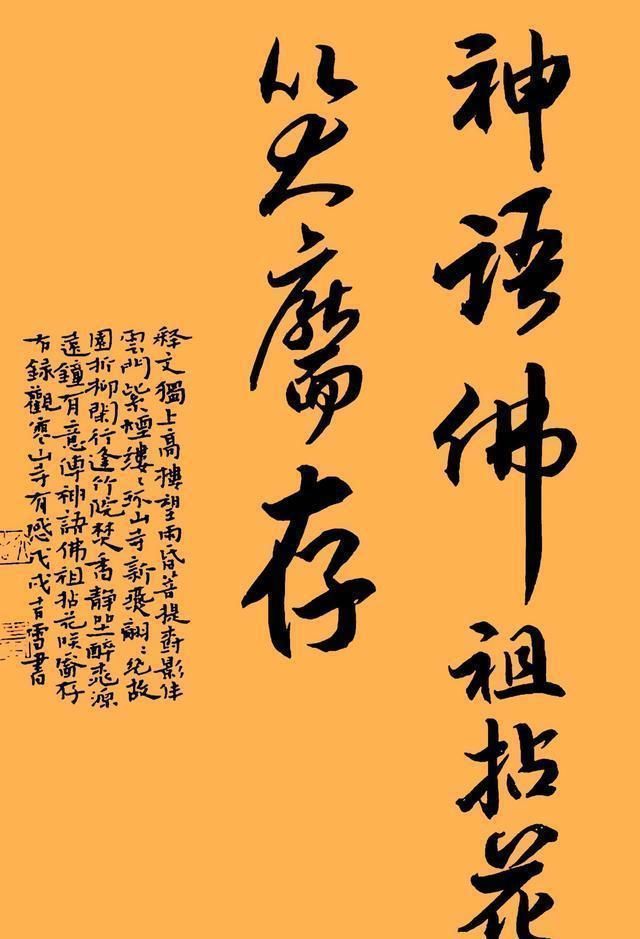 神語佛祖拈花
笑靨存
释文獨上高樓望雨昏菩提影佳
雲門紫煙縷〻孤山寺新翩〻紀故
園折柳閑行逢竹院焚香靜坐醉桃源
遠鐘有意傳神語佛祖拈花咲靨存
右録觀寒山寺有感戊戌吉雪書